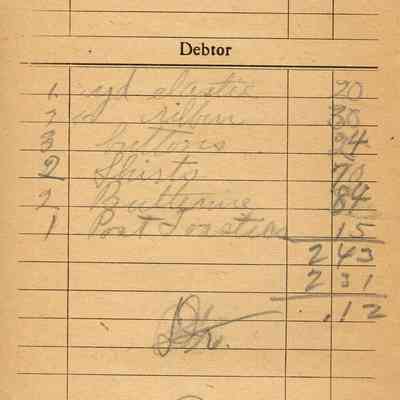 Debtor
1 yd elastic 20
2 " ribbon 30
3 buttons 24
2 Shirts 70
2 Butterine 84
1 Post Toasties 15
243
231
.12